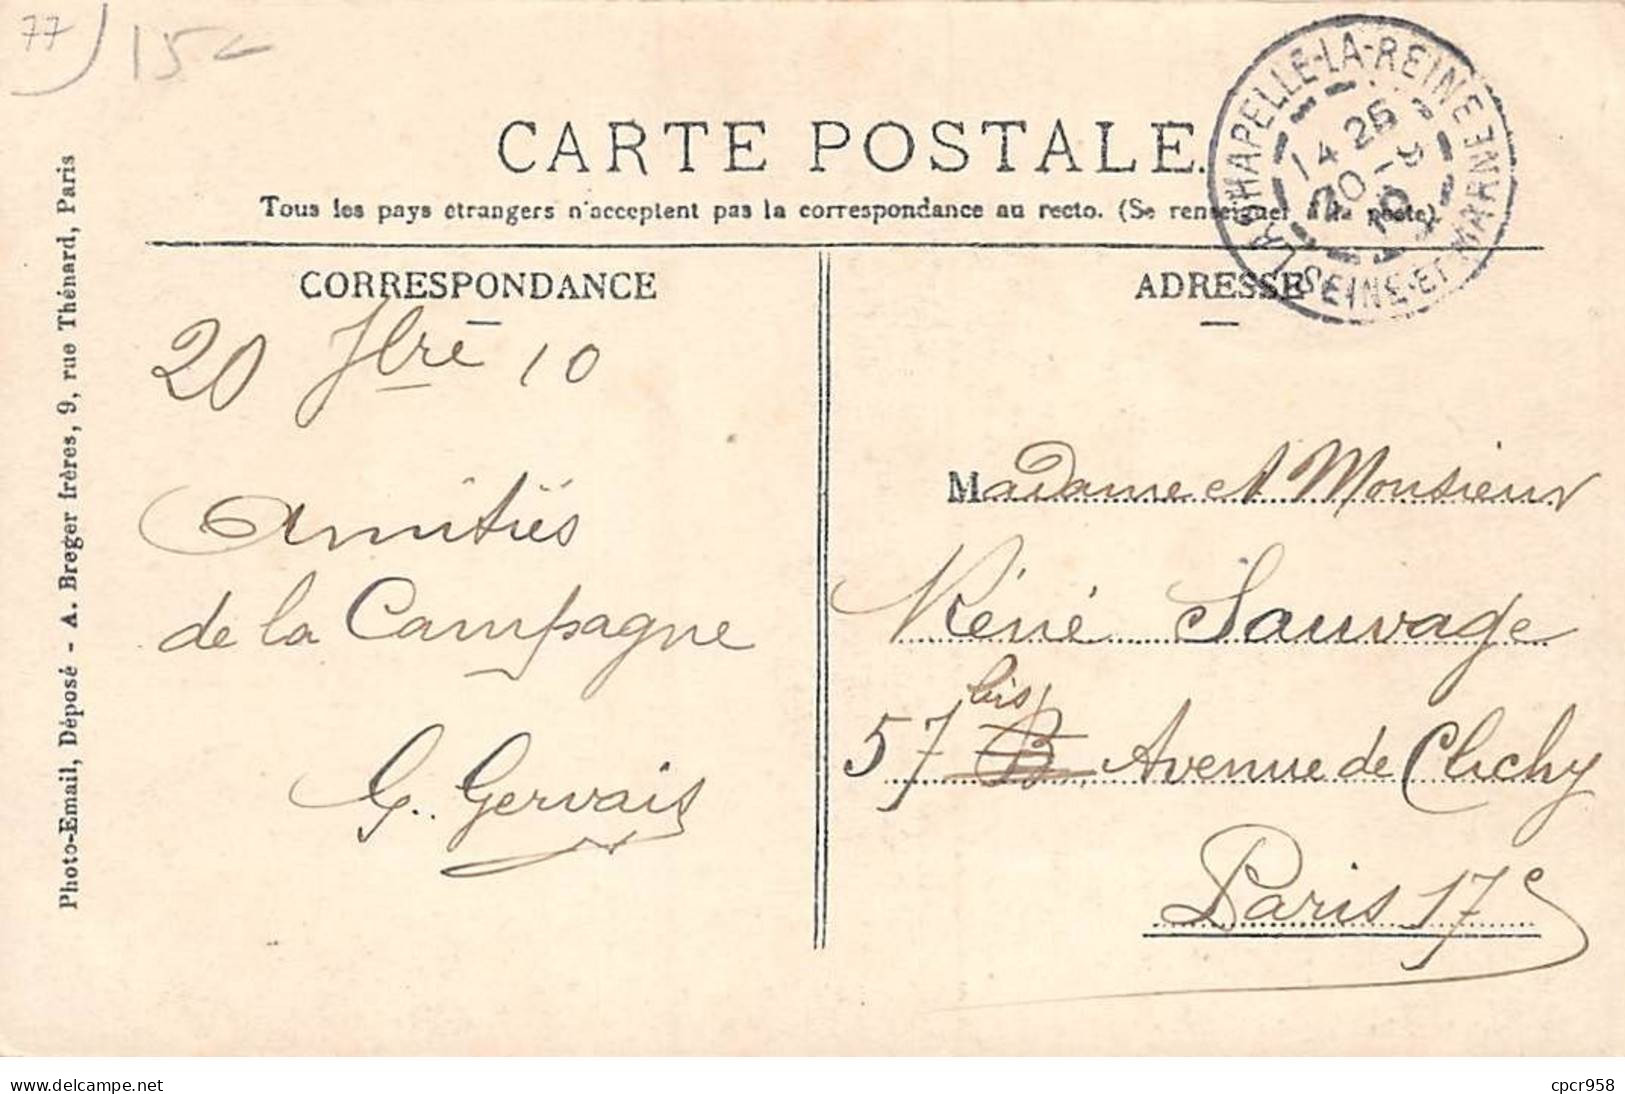 77
15€
CARTE POSTALE.
Tous les pays étrangers n'acceptent pas la correspondance au recto. (Se renseigner à la poste)
LA CHAPELLE-LA-REINE
14 25
20 - 9
10
SEINE-ET-MARNE
CORRESPONDANCE
20 7bre 10
Amitiés
de la Campagne
G. Gervais
ADRESSE
Madame et Monsieur
Réné Sauvage
57 bis Avenue de Clichy
Paris 17e
Photo-Email, Déposé - A. Breger frères, 9, rue Thénard, Paris
delcampe.net
cpcr958